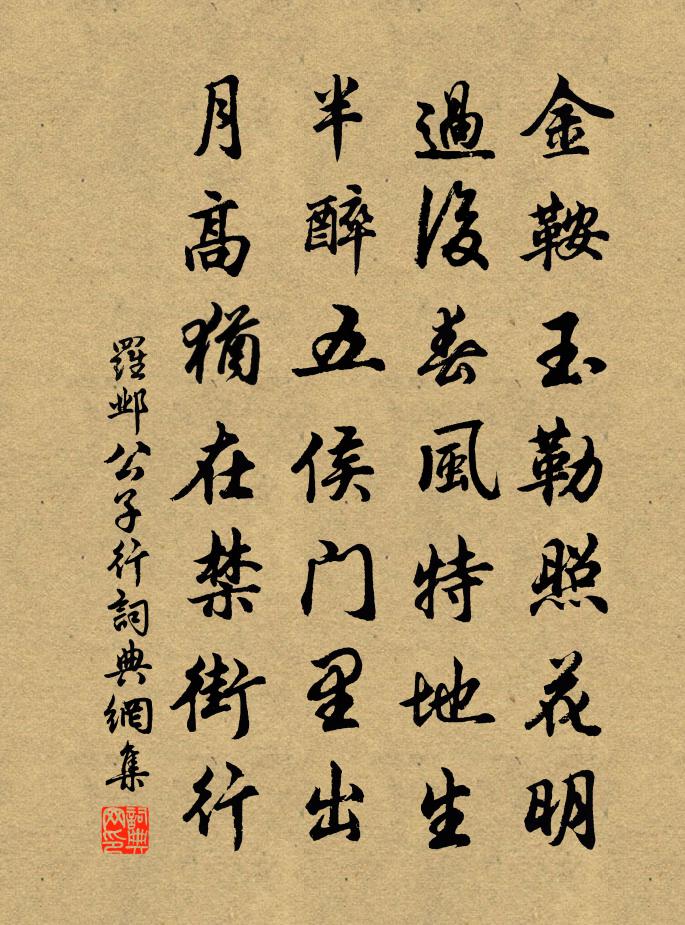 金鞍玉勒照花明
過後春風特地生
半醉五侯门里出
月高猶在禁街行
羅邺公子行詞典網集
詞典
网印